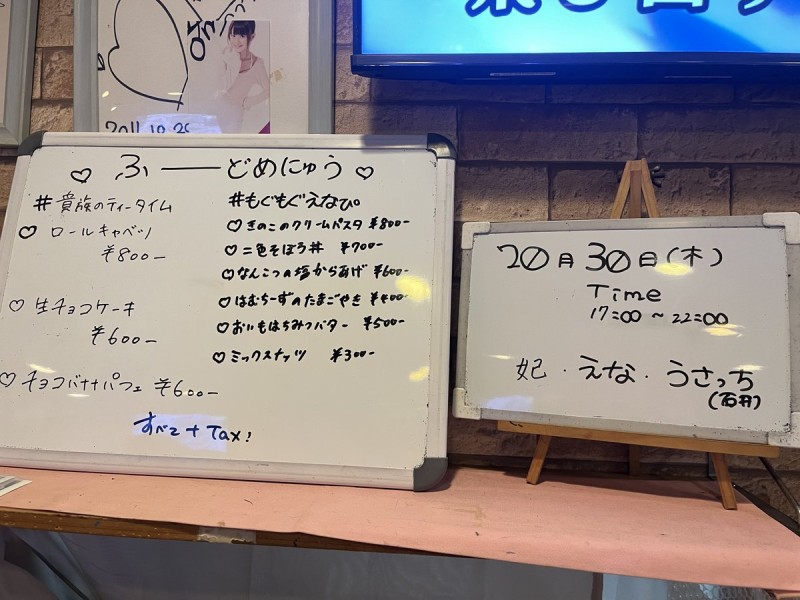 2011.10.25
♡ ふ——どめにゅう ♡
#貴族のティータイム
♡ ロールキャベツ
¥800-
♡ 生チョコケーキ
¥600-
♡ チョコバナナパフェ ¥600-
#もぐもぐえなぴ。
♡ きのこのクリームパスタ ¥800-
♡ 二色そぼろ丼 ¥700-
♡ なんこつの塩からあげ ¥600-
♡ はむちーずのたまごやき ¥400-
♡ おいもはちみつバター ¥500-
♡ ミックスナッツ ¥300-
すべて + Tax!
10月30日(木)
Time
17:00 ~ 22:00
妃・えな・うさっち
(石井)